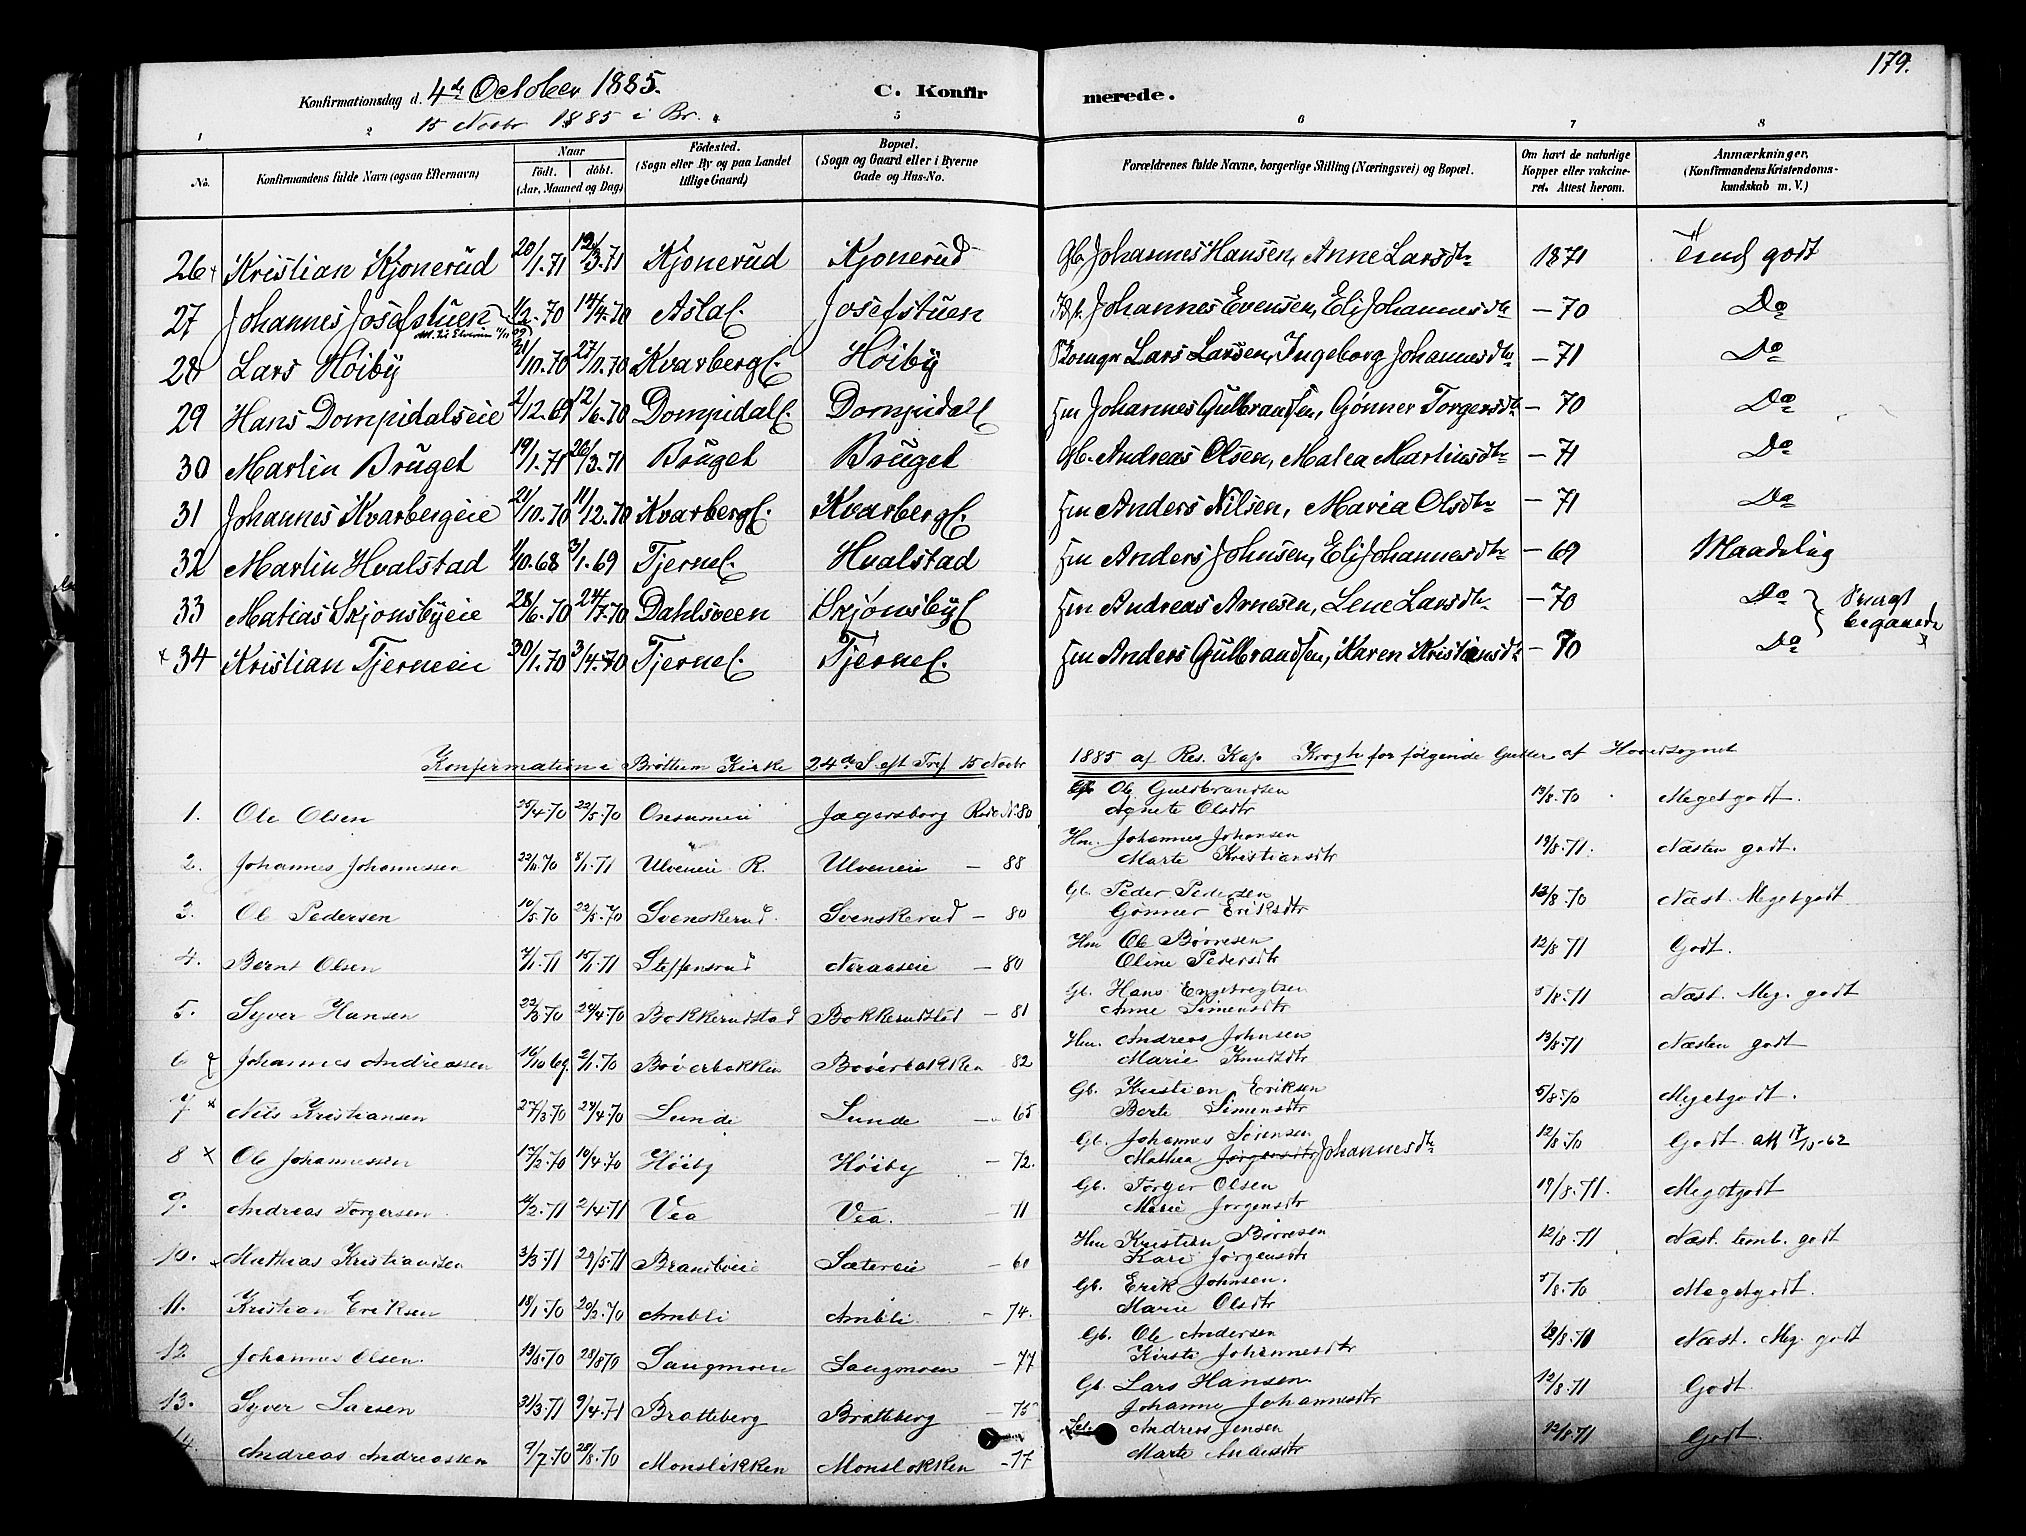 179.
Konfirmationsdag d. 4de October 1885. C. Konfirmerede.
15 Novbr 1885 i Br.
1 2 5 6 7 8
No. Konfirmandens fulde Navn (ogsaa Efternavn) Naar födt. döbt. (Aar, Maaned og Dag) Födested. (Sogn eller By og paa Landet tillige Gaard) Bopæl. (Sogn og Gaard eller i Byerne Gade og Hus-No. Forældrenes fulde Navne, borgerlige Stilling (Næringsvei) og Bopæl. Om havt de naturlige Kopper eller vakcineret. Attest herom. Anmærkninger, (Konfirmandens Kristendomskundskab m. V.)
26 Kristian Kjonerud 20/1.71 12/3.71 Kjonerud Kjonerud Gb. Johannes Hansen, Anne Larsdtr 1871 godt
27 Johannes Josefstuen 1/2.70 14/4.70 Josefstuen Johannes Evensen, Eli Johannesdtr — 70 Do
28 Lars Höiby 31/10.70 27/11.70 Kvarbergs. Höiby Lars Larsen, Ingeborg Johannesdtr — 71 Do
29 Hans Dompidalseie 2/12.69 12/6.70 Dompidals. Dompidals Hm Johannes Gulbrandsen, Gönner Torgersdtr — 70 Do
30 Martin Bruget 19/1.71 26/3.71 Bruget Bruget Gb. Andreas Olsen, Malea Martinsdtr — 71 Do
31 Johannes Kvarbergeie 21/10.70 11/12.70 Kvarbergs. Kvarbergs. Hm Anders Nilsen, Maria Olsdtr — 71 Do
32 Martin Hvalstad 1/10.68 3/1.69 Tjernes. Hvalstad Hm Anders Johnsen, Eli Johannesdtr — 69 Maadelig
33 Matias Skjonsbyeie 28/6.70 24/7.70 Dahlsveen Skjönsbys Hm Andreas Arnesen, Lene Larsdtr — 70 Do
× 34 Kristian Tjerneeie 30/1.70 3/4.70 Tjernes. Tjernes. Hm Anders Gulbrandsen, Karen Kristiansdtr — 70 Do
Konfirmation i Bröttum Kirke 24de S. eft Tref. 15 Novbr 1885 af Res. Kap. Krogh for følgende Gutter af Hovedsognet
1. Ole Olsen 25/4.70 22/5.70 Onsumeie Jagersborg Rode No 80 Ole Guldbrandsen Agnete Olsdtr 13/8.70 Meget godt.
2. Johannes Johannessen 22/11.70 8/1.71 Ulveneie R. Ulveneie — 88 Hm. Johannes Johansen Marte Kristiansdtr 19/8.71. Næsten godt.
3. Ole Pedersen 10/5.70 22/5.70 Svenskerud Svenskerud — 80 Gb. Peder Pedersen Gönner Eriksdtr 13/8.70 Næst. Meget godt
4. Bernt Olsen 4/1.71 15/1.71 Steffensrud Neraaseie — 80 Hm Ole Börresen Oline Pedersdtr 12/8.71 Godt.
5. Syver Hansen 22/3.70 24/4.70 Bakkerudstad Bakkerudstad — 81 Gb. Hans Engebregtsen Anne Simensdtr 5/8.71 Næst. Meg. godt
6 Johannes Andreassen 16/10 69. 2/1.70 Böverbakken Böverbakken — 82 Hm. Andreas Johnsen Marie Knudsdtr 13/8.71 Næsten godt
7 × Nils Kristiansen 27/3.70 24/4.70 Lunde Lunde — 65 Gb. Kristian Eriksen Berte Simensdtr 5/8.70 Meget godt.
8 × Ole Johannessen 17/2.70 10/4.70 Höiby Höiby — 72. Gb. Johannes Mathea Johannesdtr 12/8.70 Godt.
9. Andreas Torgersen 4/2.71 2/4.71 Vea Vea. — 71 Gb. Torger Olsen Marie Jörgensdtr 19/8.71. Meget godt
10. Mathias Kristiansen 3/3.71 29/5.71 Sætereie — 60 Hm Kristian Börresen Kari Jörgensdtr 12/8.71 Næst. godt
11. Kristian Eriksen 18/1.70 20/2.70 Ambli Ambli — 74. Gb. Erik Johnsen. Marie Olsdtr 5/8.70 Meget godt.
12 Johannes Olsen. 13/8.70 28/8 70 Saugmoen Saugmoen — 77 Gb. Ole Andersen Kirsti Johannesdtr Næst. Meg. godt
13. Syver Larsen 31/3.71 9/4.71 Bratteberg Bratteberg — 75 Gb. Lars Hansen Johanne Johannesdtr 12/8.71 Godt
14. Andreas Andreassen 9/7.70 28/8.70 Monslökken Monslökken — 77 Andreas Jensen Marte Andersdtr 12/8.71 Godt.